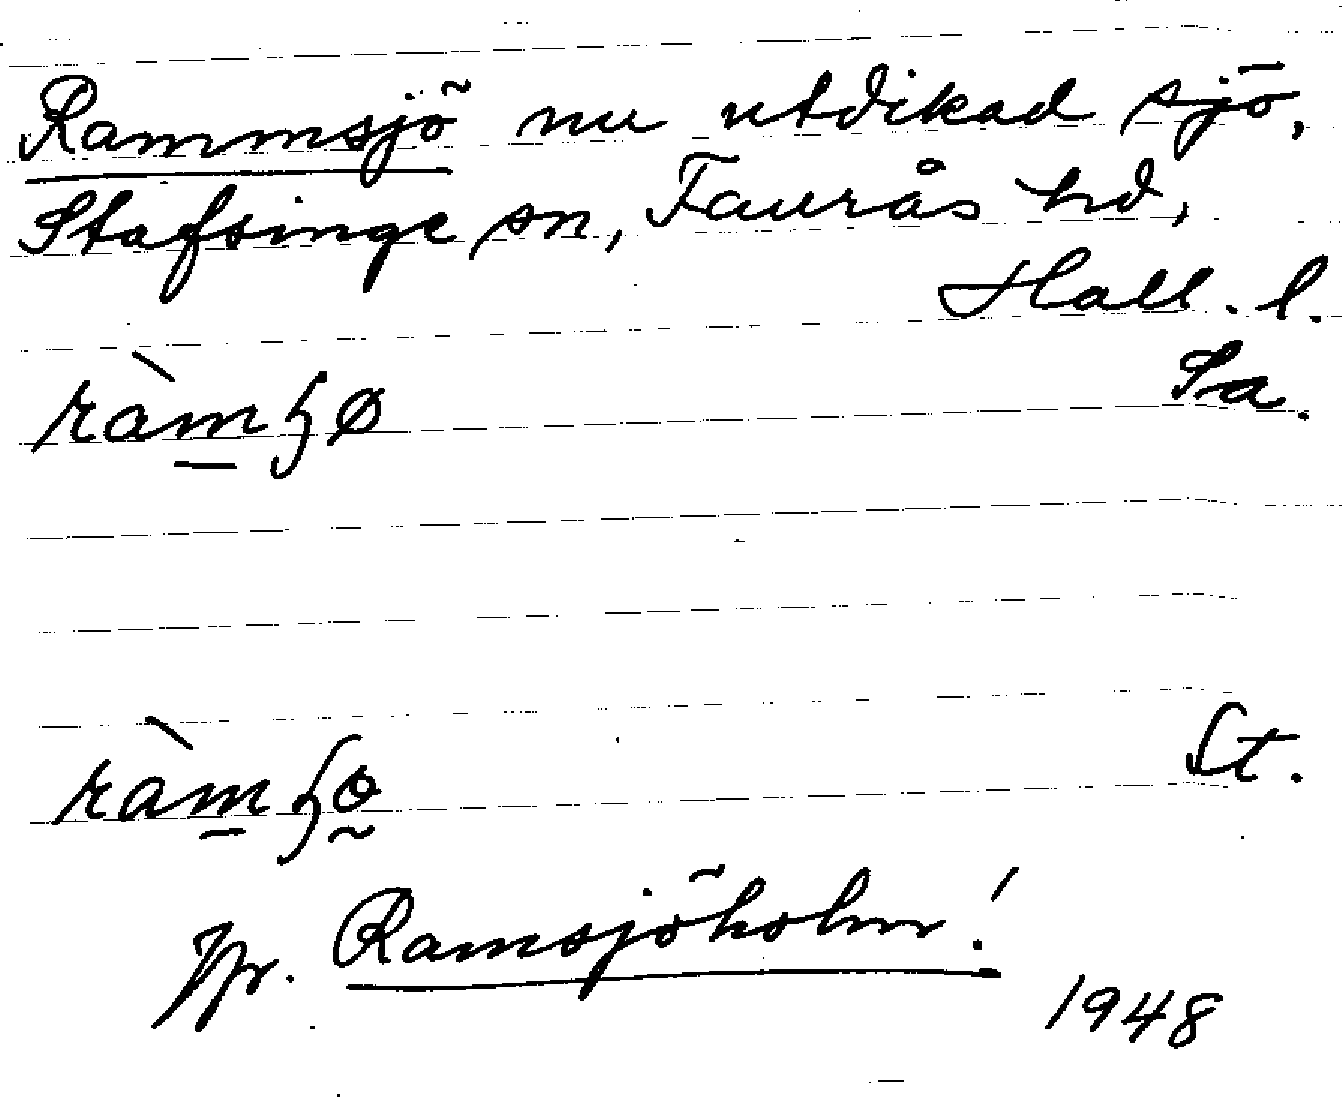 Rammsjö nu utdikad sjö,
Stafsinge sn, Faurås hd,
Hall. l.
Sa.
St.
Jfr. Ramsjöholm!
1948